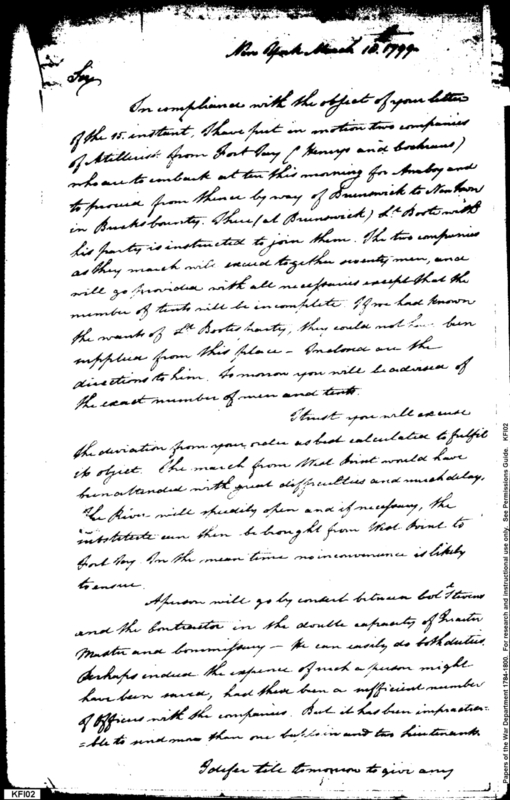 New York March 18.th 1799
Sir
In compliance with the object of your letter
of the 15. instant, I have put in motion two companies
of Artillerist from Fort Jay (Henrys and Cochrans)
who are to embark at ten this morning for Amboy and
to proceed from thence by way of Brunswick to New town
in Bucks County. There (at Brunswick) Lt. Boote with
his party is instructed to join them. The two companies
as they march will exceed together seventy men, and
will go provided with all necessaries except that the
number of tents will be incomplete. If we had known
the wants of Lt Bootes party, they could not have been
supplied from this place - Inclosed are the
directions to him. Tomorrow you will be advised of
the exact number of men and tents.
I trust you will excuse
the deviation from your order as best calculated to fulfil
its object. The march from West Point would have
been attended with great difficulties and much delay.
The River will speedily open and if necessary, the
substitute can then be brought from West Point to
Fort Jay. In the mean time no inconvenience is likely
to ensue.
A person will go by concert between Col Stevens
and the Contractor in the double capacity of Quarter
Master and Commissary - He can easily do both duties.
Perhaps indeed the expence of such a person might
have been saved, had there been a sufficient number
of Officers with the companies. But it has been impractica=
=ble to send more than one Captain and two Lieutenants.
I defer till tomorrow to give any
KFI02
Papers of the War Department 1784-1800. For research and instructional use only. See Permissions Guide. KFI02